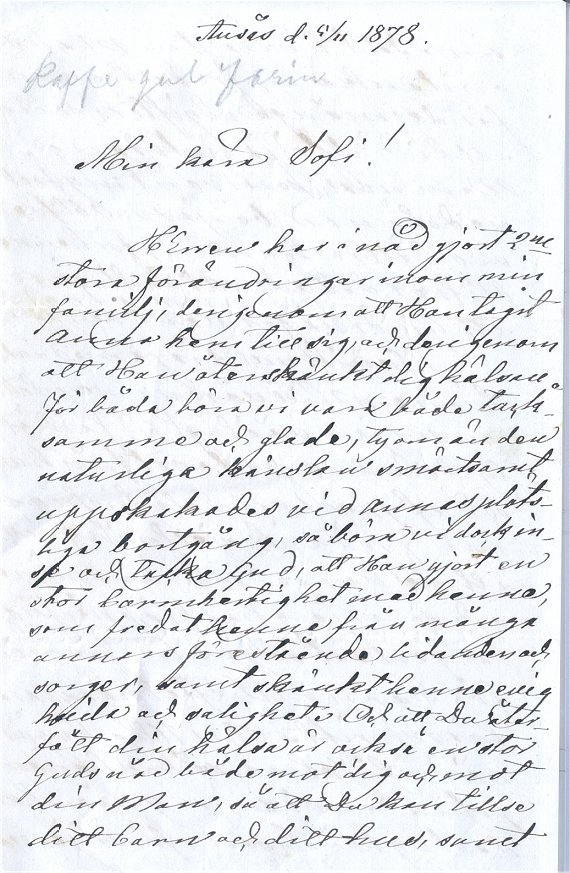 Ansäs d. 5/11 1878.
Kaffe gul Farin
Min kära Sofi!
Herren har i nåd gjort 2ne
stora förändringar inom min
familj, derigenom att Han tagit
Anna hem till sig, och derigenom
att Han återskänkt dig hälsan.
För båda böra vi vara både tack-
samme och glade, ty om än den
naturliga känslan smärtsamt
uppskakades vid Annas plöts-
liga bortgång, så böra vi dock in-
se och Tacka Gud, att Han gjort en
stor barmhertighet med henne,
som fredat henne från många
annars förestående lidanden och
sorger, samt skänkt henne evig
hvila och salighet. Och att Du åter-
fått din hälsa är också en stor
Guds nåd både mot dig och mot
din Man, så att Du kan tillse
ditt barn och ditt hus, samt